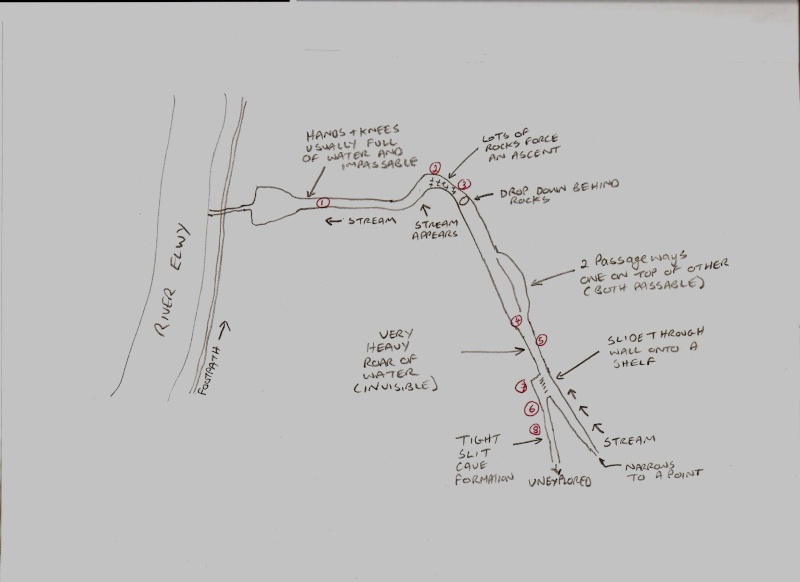 HANDS + KNEES
USUALLY FULL
OF WATER AND
IMPASSABLE
LOTS OF
ROCKS FORCE
AN ASCENT
2
3
DROP DOWN BEHIND
ROCKS
1
← STREAM
STREAM
APPEARS
RIVER ELWY
FOOTPATH →
2 Passageways
ONE ON TOP OF OTHER
(BOTH PASSABLE)
4
5
VERY
HEAVY
ROAR OF
WATER
(INVISIBLE)
SLIDE THROUGH
WALL ONTO A
SHELF
7
6
8
STREAM
TIGHT
SLIT
CAVE
FORMATION
UNEXPLORED
NARROWS
TO A POINT